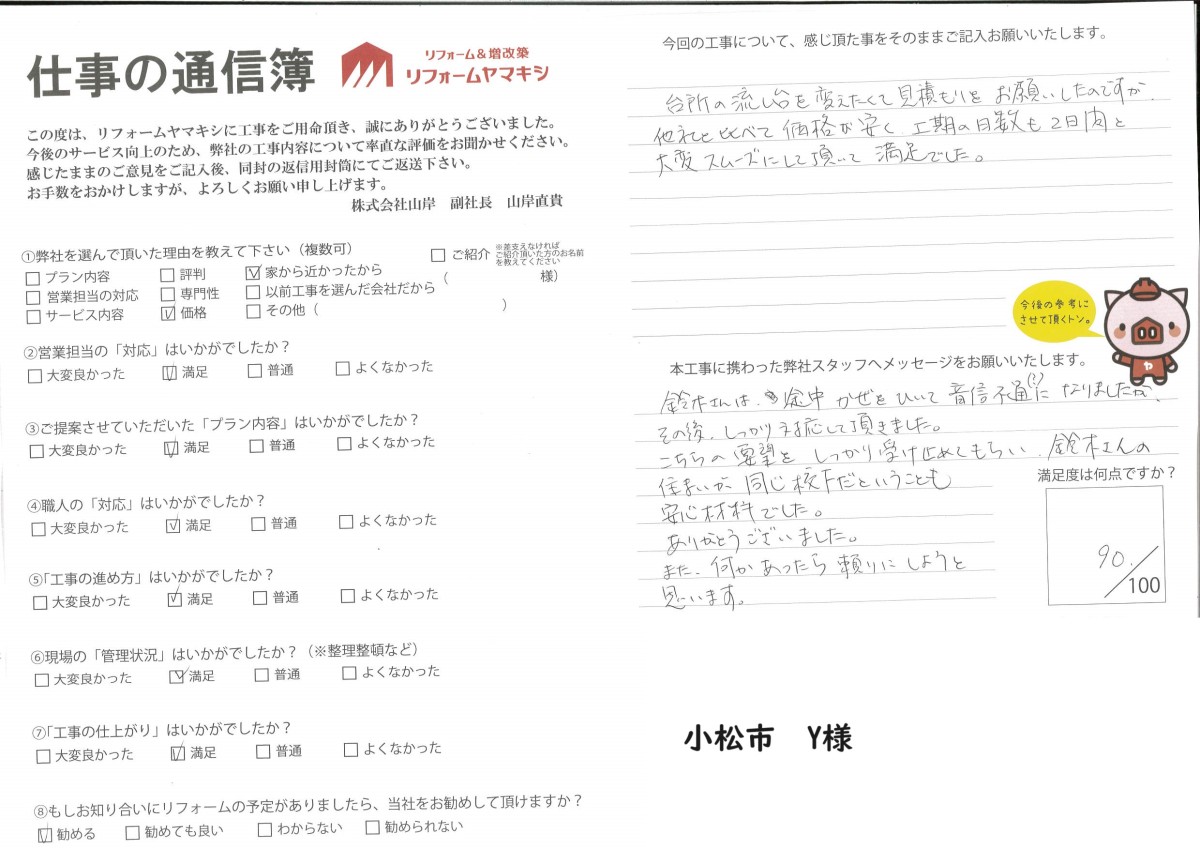 仕事の通信簿
リフォーム&増改築
リフォームヤマキシ
この度は、リフォームヤマキシに工事をご用命頂き、誠にありがとうございました。
今後のサービス向上のため、弊社の工事内容について率直な評価をお聞かせください。
感じたままのご意見をご記入後、同封の返信用封筒にてご返送下さい。
お手数をおかけしますが、よろしくお願い申し上げます。
株式会社山岸 副社長 山岸直貴
①弊社を選んで頂いた理由を教えて下さい（複数可）
□ プラン内容 □ 評判 ☑ 家から近かったから
□ 営業担当の対応 □ 専門性 □ 以前工事を選んだ会社だから
□ サービス内容 ☑ 価格 □ その他（ ）
□ ご紹介 ※差支えなければ
ご紹介頂いた方のお名前
を教えてください
（ 様）
②営業担当の「対応」はいかがでしたか？
□ 大変良かった ☑ 満足 □ 普通 □ よくなかった
③ご提案させていただいた「プラン内容」はいかがでしたか？
□ 大変良かった ☑ 満足 □ 普通 □ よくなかった
④職人の「対応」はいかがでしたか？
□ 大変良かった ☑ 満足 □ 普通 □ よくなかった
⑤「工事の進め方」はいかがでしたか？
□ 大変良かった ☑ 満足 □ 普通 □ よくなかった
⑥現場の「管理状況」はいかがでしたか？（※整理整頓など）
□ 大変良かった ☑ 満足 □ 普通 □ よくなかった
⑦「工事の仕上がり」はいかがでしたか？
□ 大変良かった ☑ 満足 □ 普通 □ よくなかった
⑧もしお知り合いにリフォームの予定がありましたら、当社をお勧めして頂けますか？
☑ 勧める □ 勧めても良い □ わからない □ 勧められない
今回の工事について、感じ頂た事をそのままご記入お願いいたします。
台所の流し台を変えたくて見積もりをお願いしたのですが、
他社と比べて価格が安く工期の日数も2日内と
大変スムーズにして頂いて満足でした。
今後の参考に
させて頂くトン。
本工事に携わった弊社スタッフへメッセージをお願いいたします。
鈴木さんは、途中かぜをひいて音信不通(?)になりましたが、
その後、しっかり対応して頂きました。
こちらの要望をしっかり受け止めてもらい、鈴木さんの
住まいが同じ校下だということも
安心材料でした。
ありがとうございました。
また、何かあったら頼りにしようと
思います。
満足度は何点ですか？
90/100
小松市 Y様